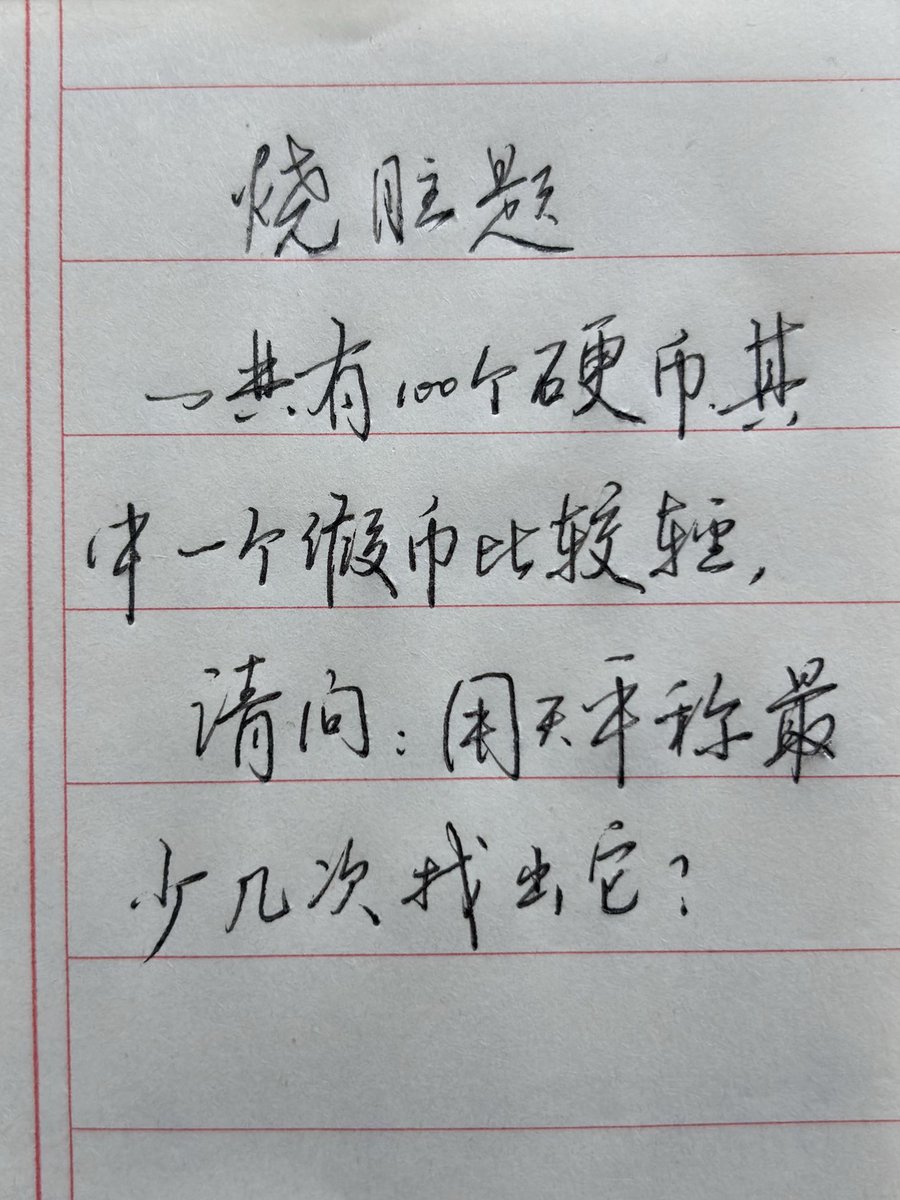 烧脑题
一共有100个硬币.其
中一个假币比较轻,
请问:用天平称最
少几次找出它?